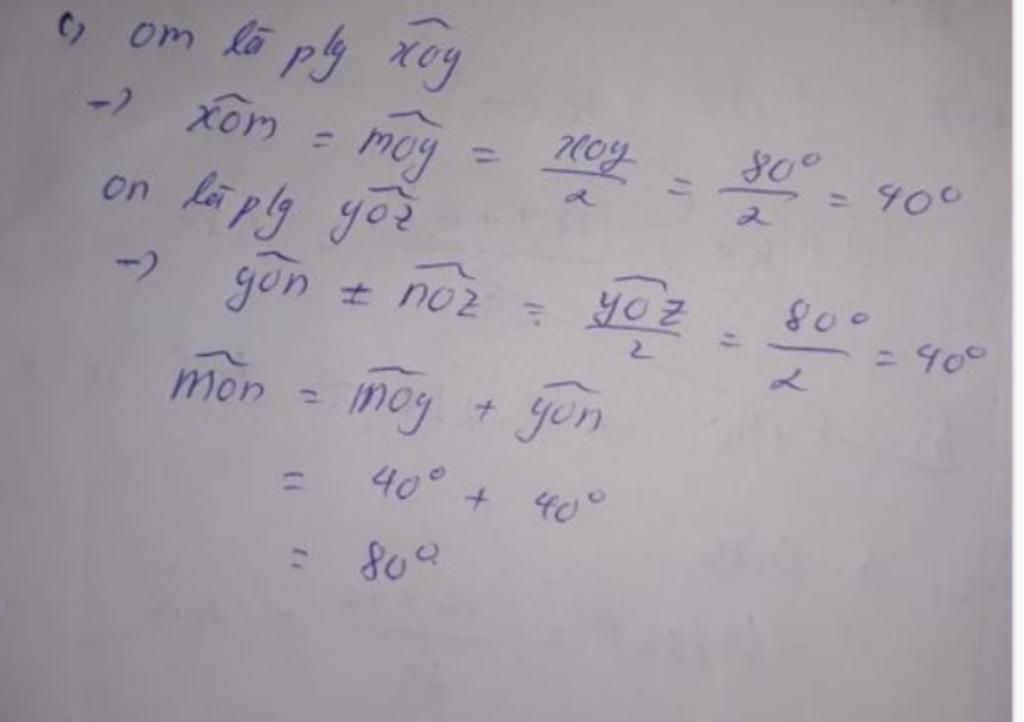 c) om là plg xôy
→ xôm = môy = xoy/2 = 80°/2 = 40°
on là plg yôz
→ yôn = nôz = yôz/2 = 80°/2 = 40°
môn = môy + yôn
= 40° + 40°
= 80°